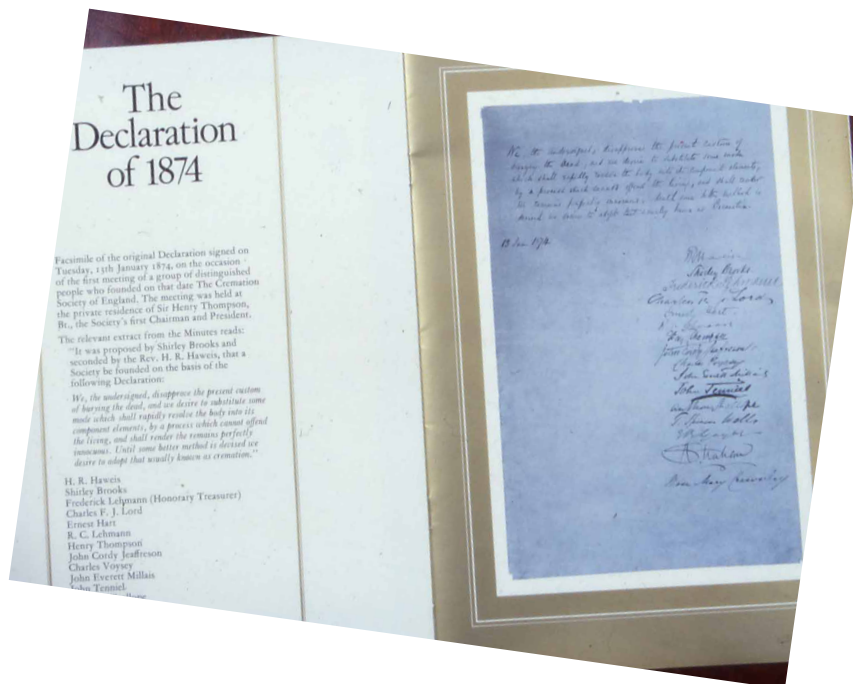 The
Declaration
of 1874
Facsimile of the original Declaration signed on
Tuesday, 13th January 1874, on the occasion
of the first meeting of a group of distinguished
people who founded on that date The Cremation
Society of England. The meeting was held at
the private residence of Sir Henry Thompson,
Bt., the Society's first Chairman and President.
The relevant extract from the Minutes reads:
"It was proposed by Shirley Brooks and
seconded by the Rev. H. R. Haweis, that a
Society be founded on the basis of the
following Declaration:
We, the undersigned, disapprove the present custom
of burying the dead, and we desire to substitute some
mode which shall rapidly resolve the body into its
component elements, by a process which cannot offend
the living, and shall render the remains perfectly
innocuous. Until some better method is devised we
desire to adopt that usually known as cremation."
H. R. Haweis
Shirley Brooks
Frederick Lehmann (Honorary Treasurer)
Charles F. J. Lord
Ernest Hart
R. C. Lehmann
Henry Thompson
John Cordy Jeaffreson
Charles Voysey
John Everett Millais
John Tenniel
We the undersigned, disapprove the present custom of
burying the dead, and we desire to substitute some mode
which shall rapidly resolve the body into its component elements,
by a process which cannot offend the living, and shall render
the remains perfectly innocuous. Until some better method is
devised we desire to adopt that usually known as Cremation
13 Jan 1874
Shirley Brooks
Charles F. J. Lord
Ernest Hart
John Cordy Jeaffreson
Charles Voysey
John Everett Millais
John Tenniel
T. Spencer Wells
Rose Mary